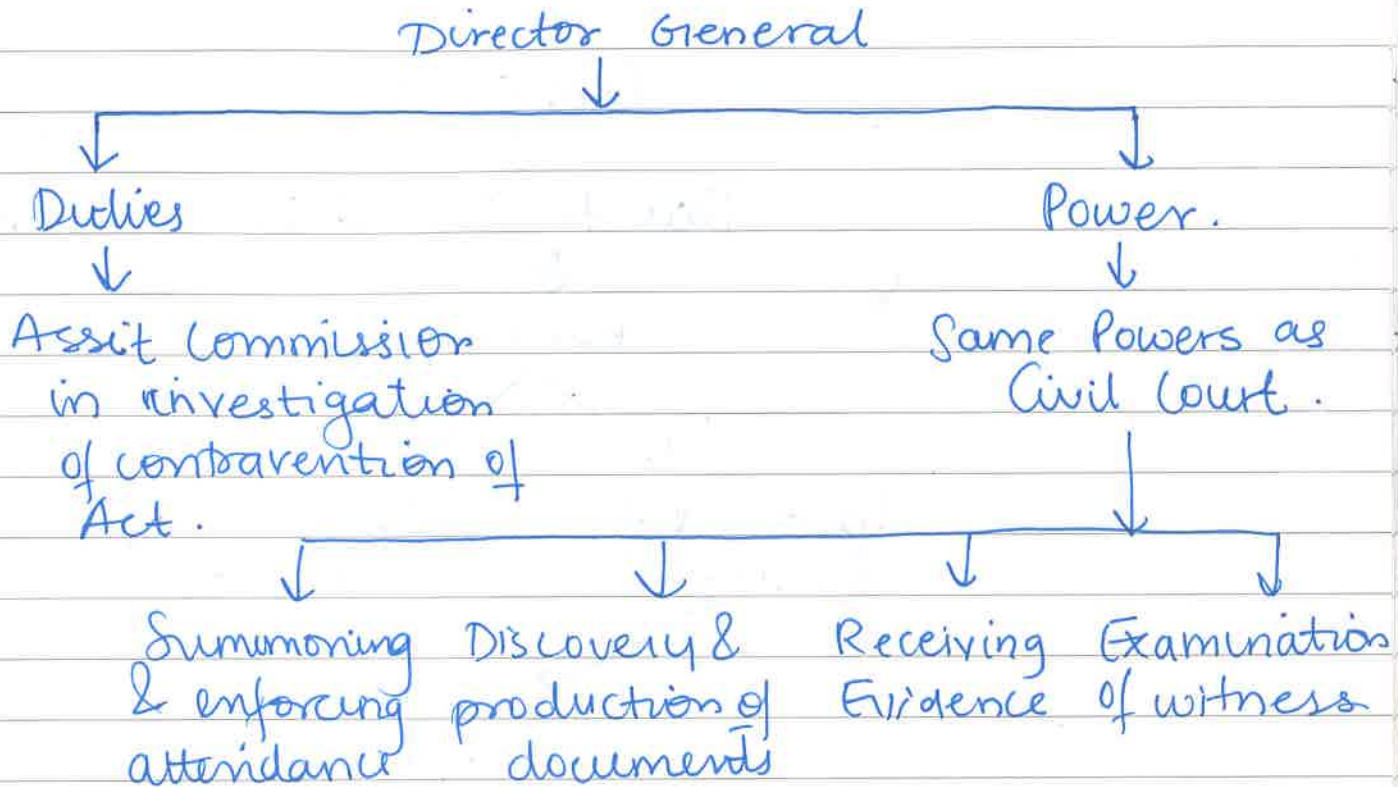 Director General
Duties
Power.
Assit Commission
in investigation
of contravention of
Act.
Same Powers as
Civil Court.
Summoning
& enforcing
attendance
Discovery &
production of
documents
Receiving
Evidence
Examination
of witness